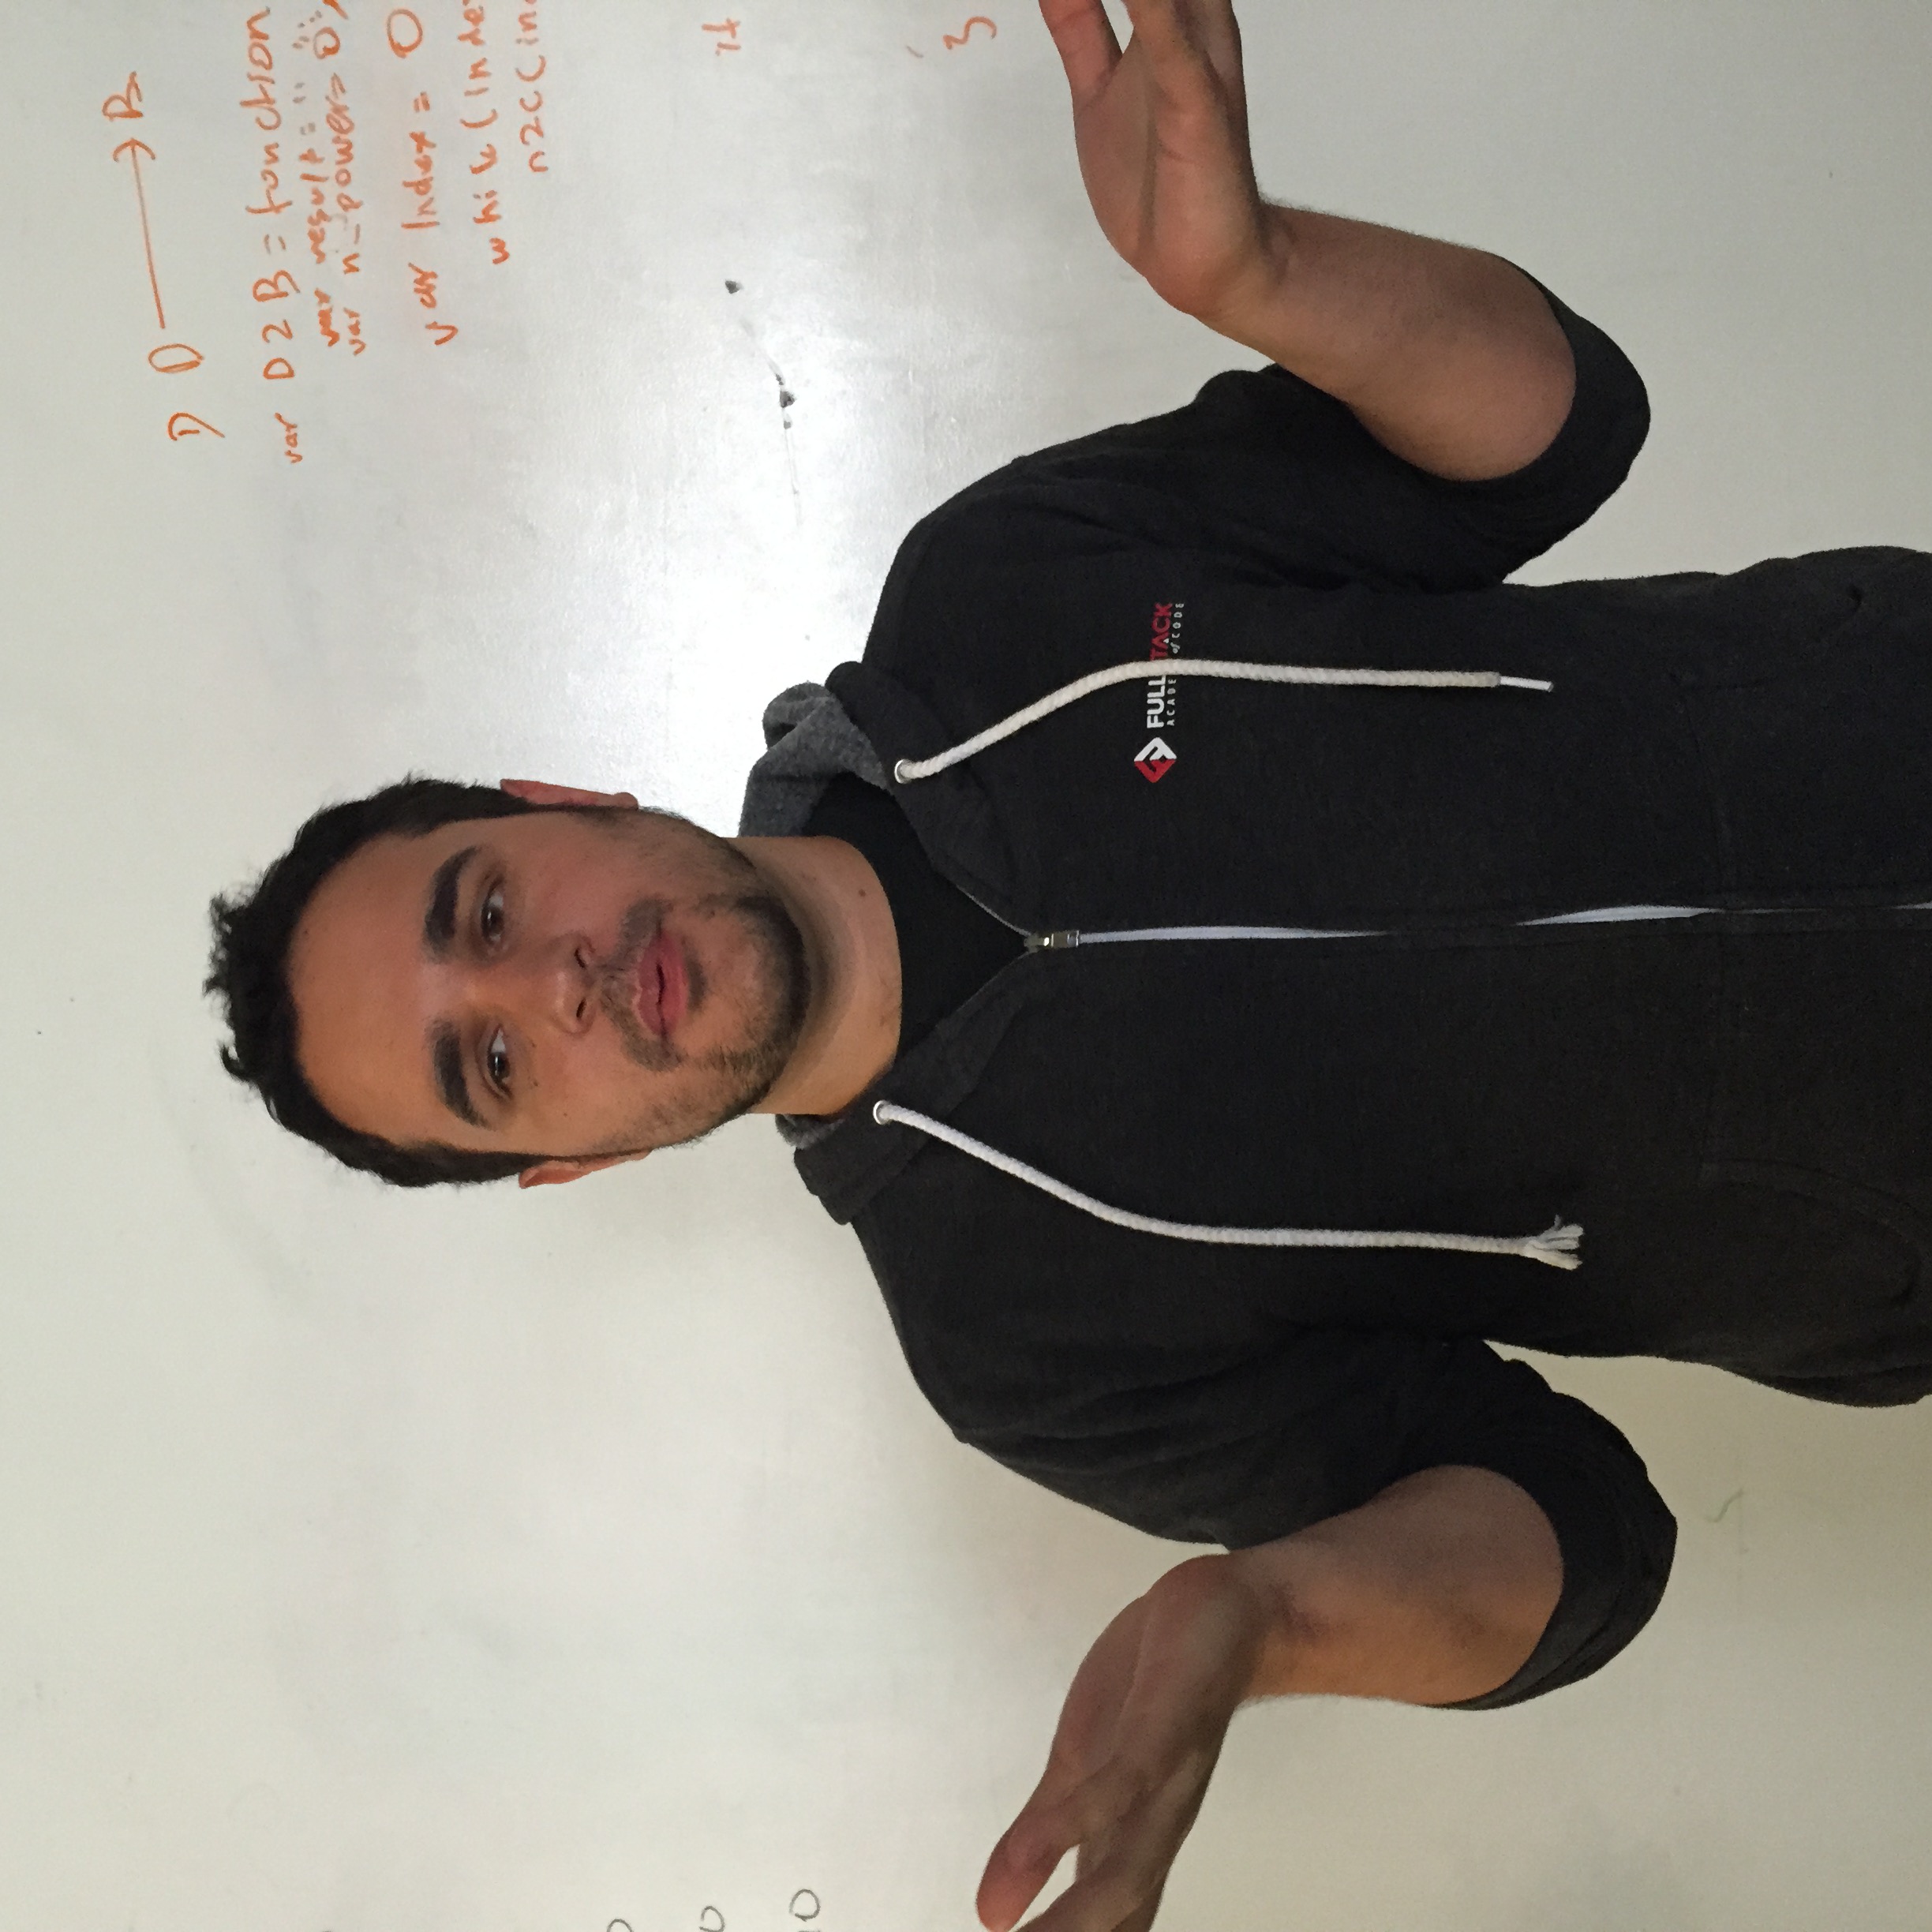 1) D → B
var D2B = function
var result = "";
var n_power = 0;
var Index = 0
while (inde
n2c (in
if
}
0
10
FULL TACK
ACADE of CODE